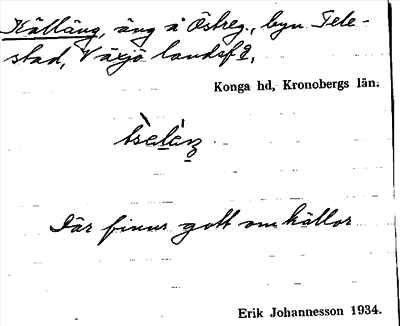 Källäng, äng å Östreg., byn Tele-
stad, Växjö landsf2,
Konga hd, Kronobergs län.
Där finns gott om källor
Erik Johannesson 1934.